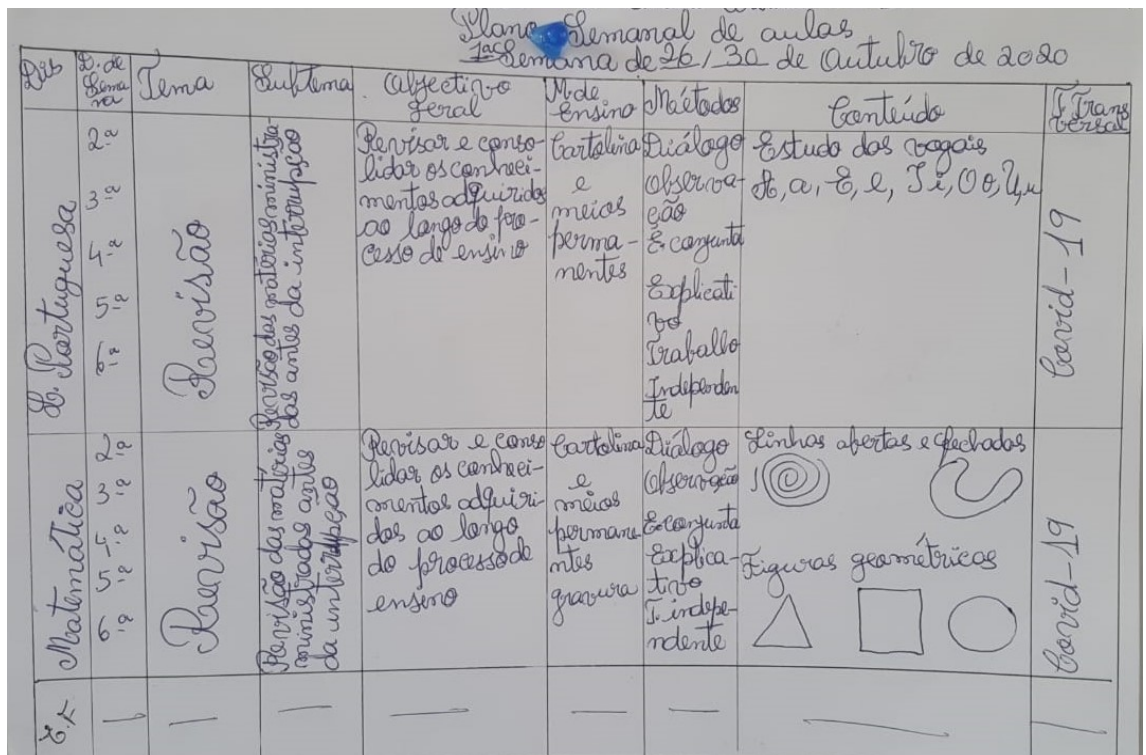 Plano Semanal de aulas
1ª Semana de 26/30 de Outubro de 2020
Dis
D. de Sema na
Tema
Subtema
Objectivo Geral
M. de Ensino
Maétodos
Conteúdo
T. Trans versal
L. Portuguesa
2ª
3ª
4ª
5ª
6ª
Revisão
Revisão das matérias ministra-
das antes da interrupção
Revisar e conso-
lidar os conheci-
mentos adquiridos
ao longo do pro-
cesso de ensino
Cartolina
e
meios
perma-
nentes
Diálogo
Observa-
ção
E. conjunta
Explicati
vo
Traballo
Independen
te
Estudo das vogais
A, a, E, e, I i, O o, U, u
Covid-19
Matemática
2ª
3ª
4ª
5ª
6ª
Revisão
Revisão das matérias
ministradas antes
da interrupção
Revisar e conso
lidar os conheci-
mentos adquiri-
dos ao longo
do processo de
ensino
Cartolina
e
meios
permane
ntes
gravura
Diálogo
Observação
E. conjunta
Explica-
tivo
T. indepe-
ndente
Linhas abertas e fechadas
Figuras geométricas
Covid-19